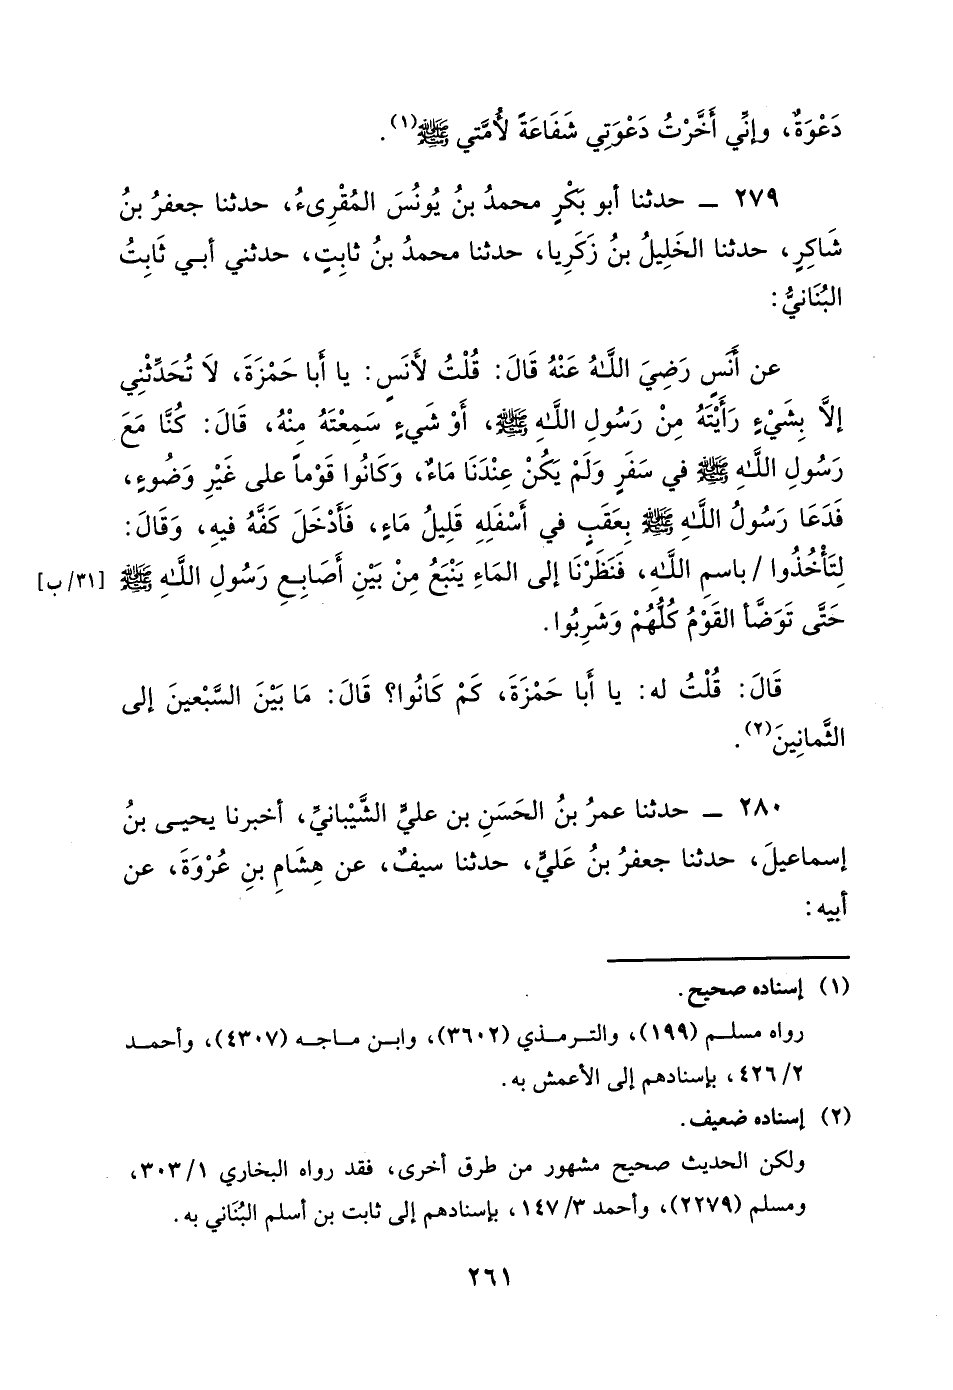 دَعْوَةٌ، وإنِّي أَخَّرْتُ دَعْوَتِي شَفَاعَةً لأُمَّتي ﷺ(١).
٢٧٩ ــ حدثنا أبو بَكْرٍ محمدُ بنُ يُونُسَ المُقْرِىءُ، حدثنا جعفرُ بنُ
شَاكِرٍ، حدثنا الخَلِيلُ بنُ زَكَرِيا، حدثنا محمدُ بنُ ثابِتٍ، حدثني أبـي ثَابِتُ
البُنَانيُّ:
عن أَنَسٍ رَضِيَ اللَّـٰهُ عَنْهُ قَالَ: قُلْتُ لأَنَسٍ: يا أَبا حَمْزَةَ، لاَ تُحَدِّثْنِي
إلاَّ بِشَيْءٍ رَأَيْتَهُ مِنْ رَسُولِ اللَّـٰهِ ﷺ، أَوْ شَيءٍ سَمِعْتَهُ مِنْهُ، قَالَ: كُنَّا مَعَ
رَسُولِ اللَّـٰهِ ﷺ في سَفَرٍ وَلَمْ يَكُنْ عِنْدَنَا مَاءٌ، وَكَانُوا قَوْماً على غَيْرِ وَضُوءٍ،
فَدَعَا رَسُولُ اللَّـٰهِ ﷺ بِعَقَبٍ في أَسْفَلِهِ قَلِيلُ مَاءٍ، فَأَدْخَلَ كَفَّهُ فيهِ، وَقَالَ:
لِتَأْخُذُوا / باسمِ اللَّـٰهِ، فَنَظَرْنَا إلى المَاءِ يَنْبَعُ مِنْ بَيْنِ أَصَابِـعِ رَسُولِ اللَّـٰهِ ﷺ [٣١/ب]
حَتَّى تَوَضَّأ القَوْمُ كُلُّهُمْ وَشَرِبُوا.
قَالَ: قُلْتُ له: يا أَبا حَمْزَةَ، كَمْ كَانُوا؟ قَالَ: مَا بَيْنَ السَّبْعينَ إلى
الثَّمانِينَ(٢).
٢٨٠ ــ حدثنا عمرُ بنُ الحَسَنِ بن عليٍّ الشَّيْبانيِّ، أخبرنا يحيـى بنُ
إسماعيلَ، حدثنا جعفرُ بنُ عَليٍّ، حدثنا سيفٌ، عن هِشَامِ بنِ عُرْوَةَ، عن
أبيه:
(١) إسناده صحيح.
رواه مسلـم (١٩٩)، والتـرمـذي (٣٦٠٢)، وابـن مـاجـه (٤٣٠٧)، وأحمـد
٤٢٦/٢، بإسنادهم إلى الأعمش به.
(٢) إسناده ضعيف.
ولكن الحديث صحيح مشهور من طرق أخرى، فقد رواه البخاري ٣٠٣/١،
ومسلم (٢٢٧٩)، وأحمد ١٤٧/٣، بإسنادهم إلى ثابت بن أسلم البُنَاني به.
٢٦١